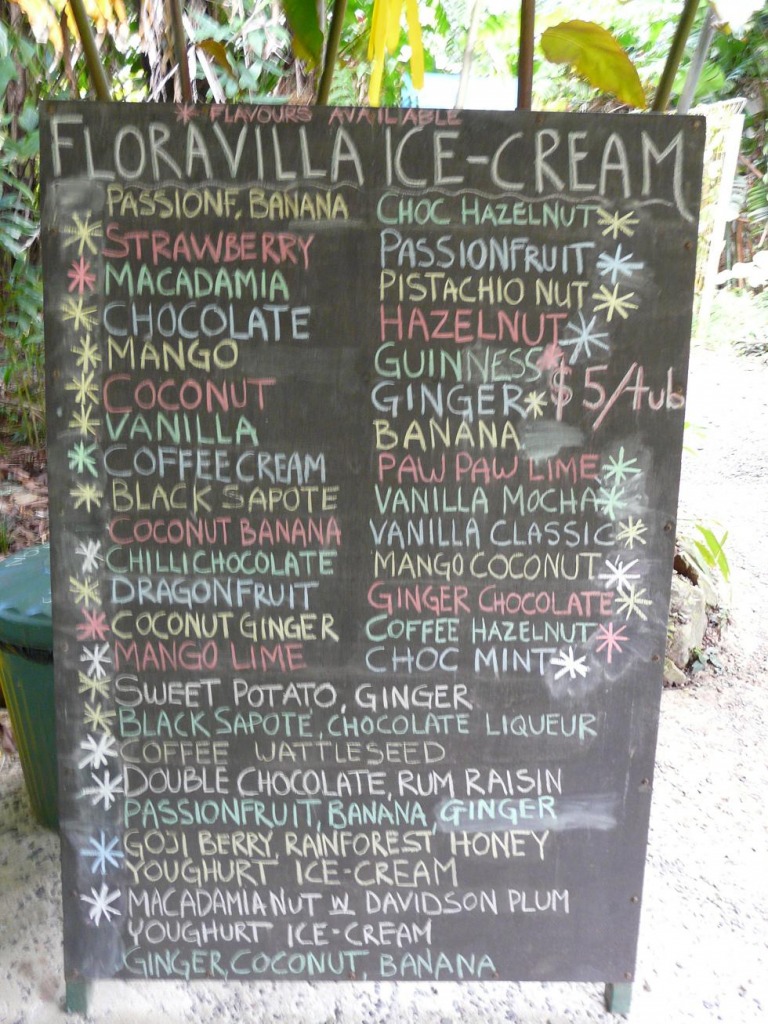 * FLAVOURS AVAILABLE
FLORAVILLA ICE-CREAM
PASSIONF, BANANA
* STRAWBERRY
* MACADAMIA
* CHOCOLATE
* MANGO
* COCONUT
* VANILLA
* COFFEE CREAM
* BLACK SAPOTE
COCONUT BANANA
* CHILLI CHOCOLATE
* DRAGONFRUIT
* COCONUT GINGER
* MANGO LIME
CHOC HAZELNUT *
PASSIONFRUIT *
PISTACHIO NUT *
HAZELNUT *
GUINNESS *
GINGER *
$5/tub
BANANA
PAW PAW LIME *
VANILLA MOCHA *
VANILLA CLASSIC *
MANGO COCONUT *
GINGER CHOCOLATE *
COFFEE HAZELNUT *
CHOC MINT *
* SWEET POTATO, GINGER
* BLACK SAPOTE, CHOCOLATE LIQUEUR
* COFFEE WATTLESEED
* DOUBLE CHOCOLATE, RUM RAISIN
PASSIONFRUIT, BANANA, GINGER
* GOJI BERRY, RAINFOREST HONEY
YOUGHURT ICE-CREAM
* MACADAMIA NUT W DAVIDSON PLUM
YOUGHURT ICE-CREAM
GINGER, COCONUT, BANANA